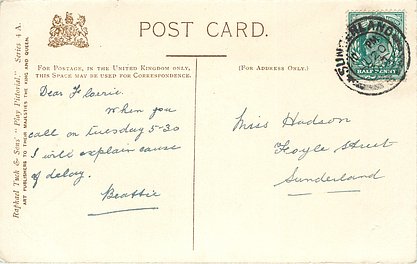 POST CARD.
FOR POSTAGE, IN THE UNITED KINGDOM ONLY,
THIS SPACE MAY BE USED FOR CORRESPONDENCE.
(FOR ADDRESS ONLY.)
Raphael Tuck & Sons' "Play Pictorial" Series 4 A.
ART PUBLISHERS TO THEIR MAJESTIES THE KING AND QUEEN.
Dear Florrie.
When you
call on Tuesday 5-30
I will explain cause
of delay.
Beattie
Miss Hudson
Foyle Street
Sunderland
SUNDERLAND
HALF PENNY